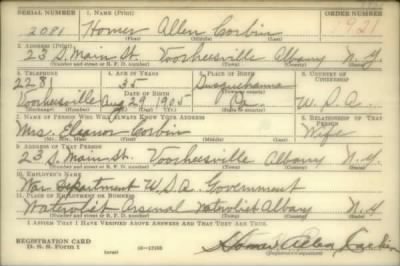 SERIAL NUMBER 1. NAME (Print) ORDER NUMBER
2081 Homer Allen Corbin
(First) (Middle) (Last)
2. ADDRESS (Print)
23 S. Main St. Voorheesville Albany N.Y.
(Number and street or R. F. D. number) (Town) (County) (State)
3. TELEPHONE 4. AGE IN YEARS 5. PLACE OF BIRTH 6. COUNTRY OF CITIZENSHIP
2281 35 Susquehanna
DATE OF BIRTH (Town or county)
Voorheesville Aug 29 1905 Pa. U.S.A.
7. NAME OF PERSON WHO WILL ALWAYS KNOW YOUR ADDRESS 8. RELATIONSHIP OF THAT PERSON
Mrs. Eleanor Corbin Wife
(Mr., Mrs., Miss) (First) (Middle) (Last)
9. ADDRESS OF THAT PERSON
23 S. Main St. Voorheesville Albany N.Y.
(Number and street or R. F. D. number) (Town) (County) (State)
10. EMPLOYER'S NAME
War Department U.S.A. Government
11. PLACE OF EMPLOYMENT OR BUSINESS
Watervliet Arsenal Watervliet Albany N.Y.
(Number and street or R. F. D. number) (Town) (County) (State)
I AFFIRM THAT I HAVE VERIFIED ABOVE ANSWERS AND THAT THEY ARE TRUE.
REGISTRATION CARD
D. S. S. Form 1 Homer Allen Corbin
(Registrant's signature)